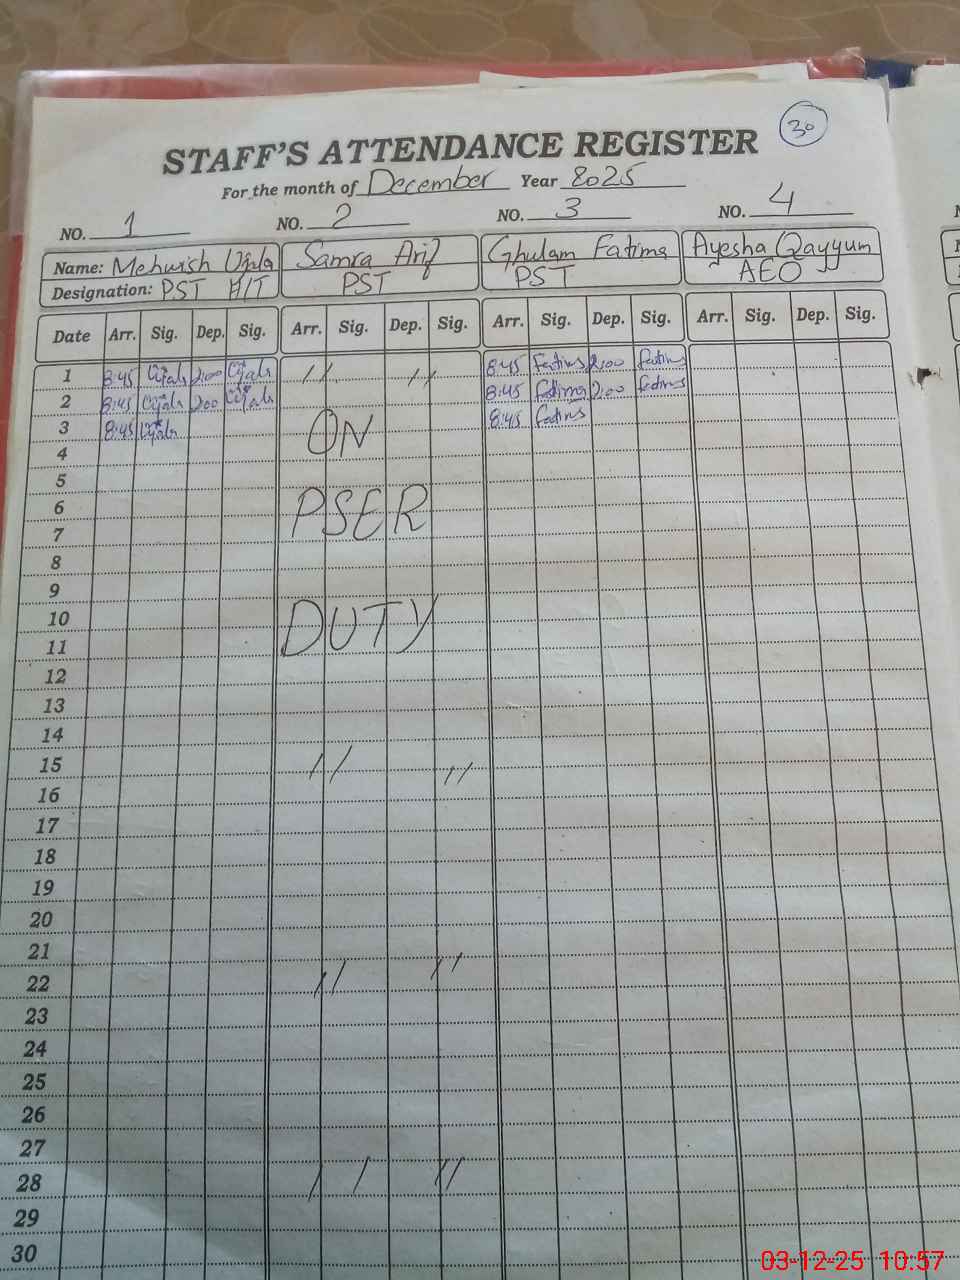 30
STAFF'S ATTENDANCE REGISTER
For the month of December Year 2025
NO. 1 NO. 2 NO. 3 NO. 4
Name: Mehwish Samra Arif Ghulam Fatima Ayesha Qayyum
Designation: PST H/T PST PST AEO
Date Arr. Sig. Dep. Sig. Arr. Sig. Dep. Sig. Arr. Sig. Dep. Sig. Arr. Sig. Dep. Sig.
1 8:45 2:00 // // 8:45 Fatima 2:00 Fatima
2 8:45 200 8:45 Fatima 2:00 Fatima
3 8:45 ON 8:45 Fatima
4
5
6 PSER
7
8
9
10 DUTY
11
12
13
14
15 // //
16
17
18
19
20
21
22 // //
23
24
25
26
27
28 / / //
29
30
03-12-25 10:57